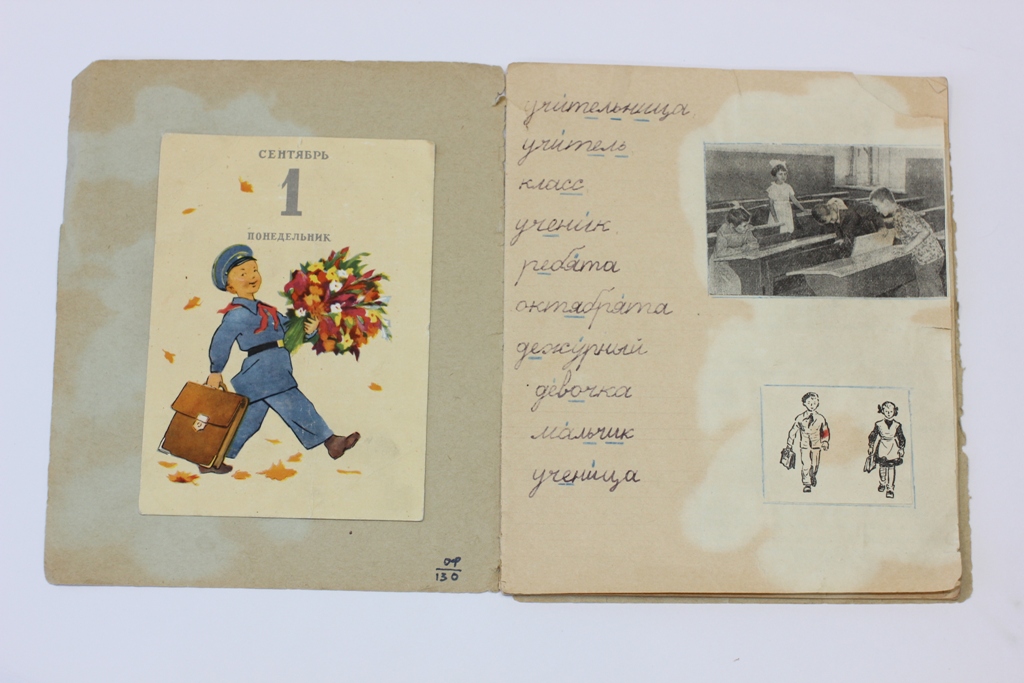 СЕНТЯБРЬ
1
ПОНЕДЕЛЬНИК
ОФ
130
учи́тельница
учи́тель
класс
учени́к
ребя́та
октября́та
дежу́рный
де́вочка
ма́льчик
учени́ца